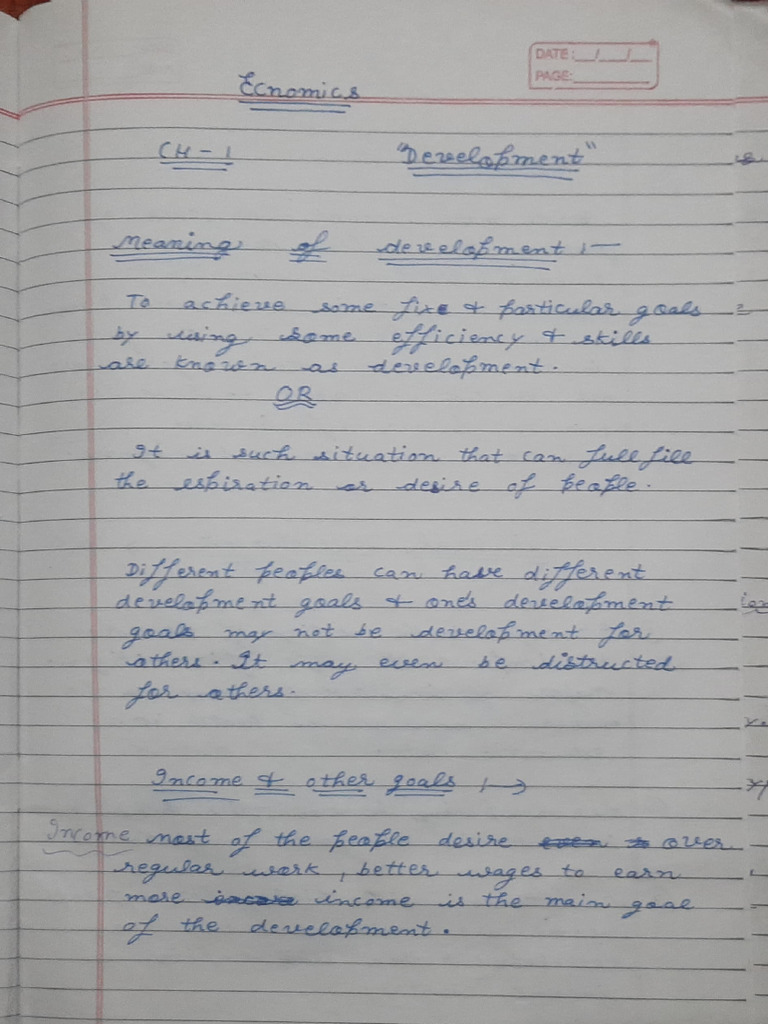 DATE:__/__/__
PAGE:
Ecnomics
CH-1 "Development"
Meaning of development :-
To achieve some fixe & particular goals
by using some efficiency & skills
are known as development.
OR
It is such situation that can fullfill
the espiration or desire of people.
Different peoples can have different
development goals & one's development
goals may not be development for
others. It may even be distructed
for others.
Income & other goals :->
Income most of the people desire over
regular work, better wages to earn
more income is the main goal
of the development.